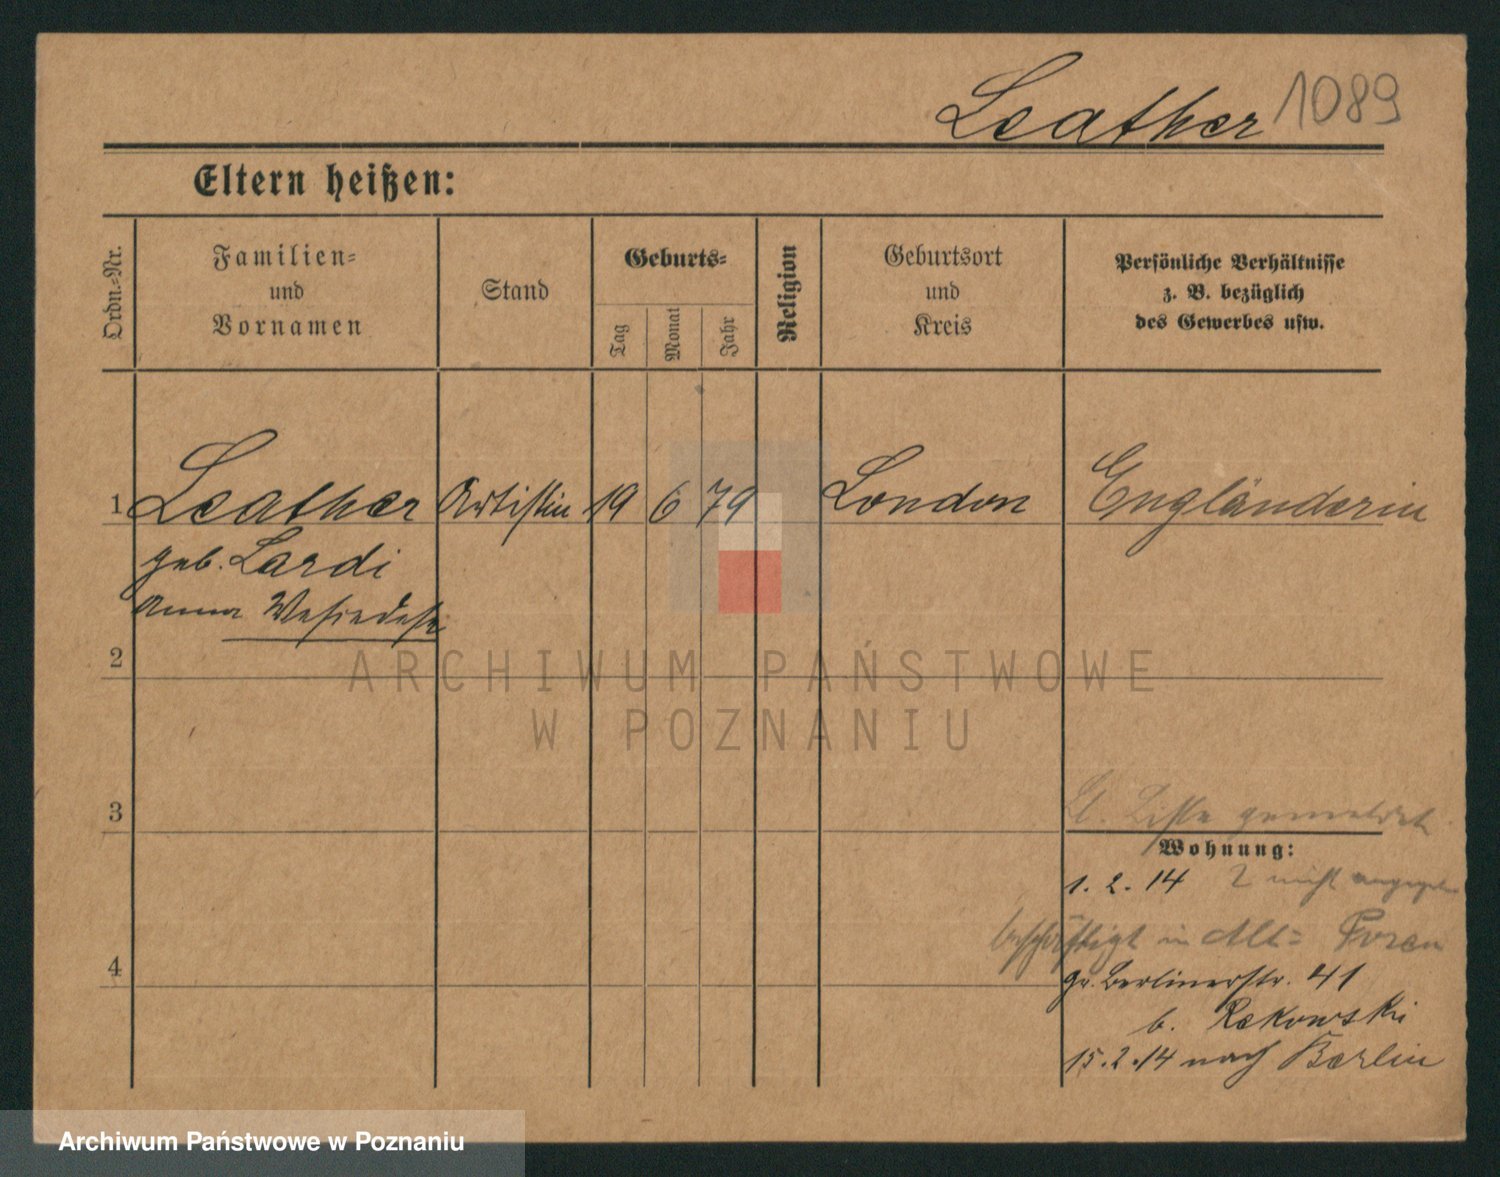 Leather 1089
Eltern heißen:
Ordn.=Nr.
Familien=
und
Vornamen
Stand
Geburts=
Tag
Monat
Jahr
Religion
Geburtsort
und
Kreis
Persönliche Verhältnisse
z. B. bezüglich
des Gewerbes usw.
1 Leather Artistin 19 6 79 London Engländerin
geb. Lardi
Anna
2
ARCHIWUM PAŃSTWOWE
W POZNANIU
3
Liste gemeldet
Wohnung:
1. 2. 14 nicht
beschäftigt in Alt= Posen
4
gr. Berlinerstr. 41
b. Rekowski
15.2.14 nach Berlin
Archiwum Państwowe w Poznaniu